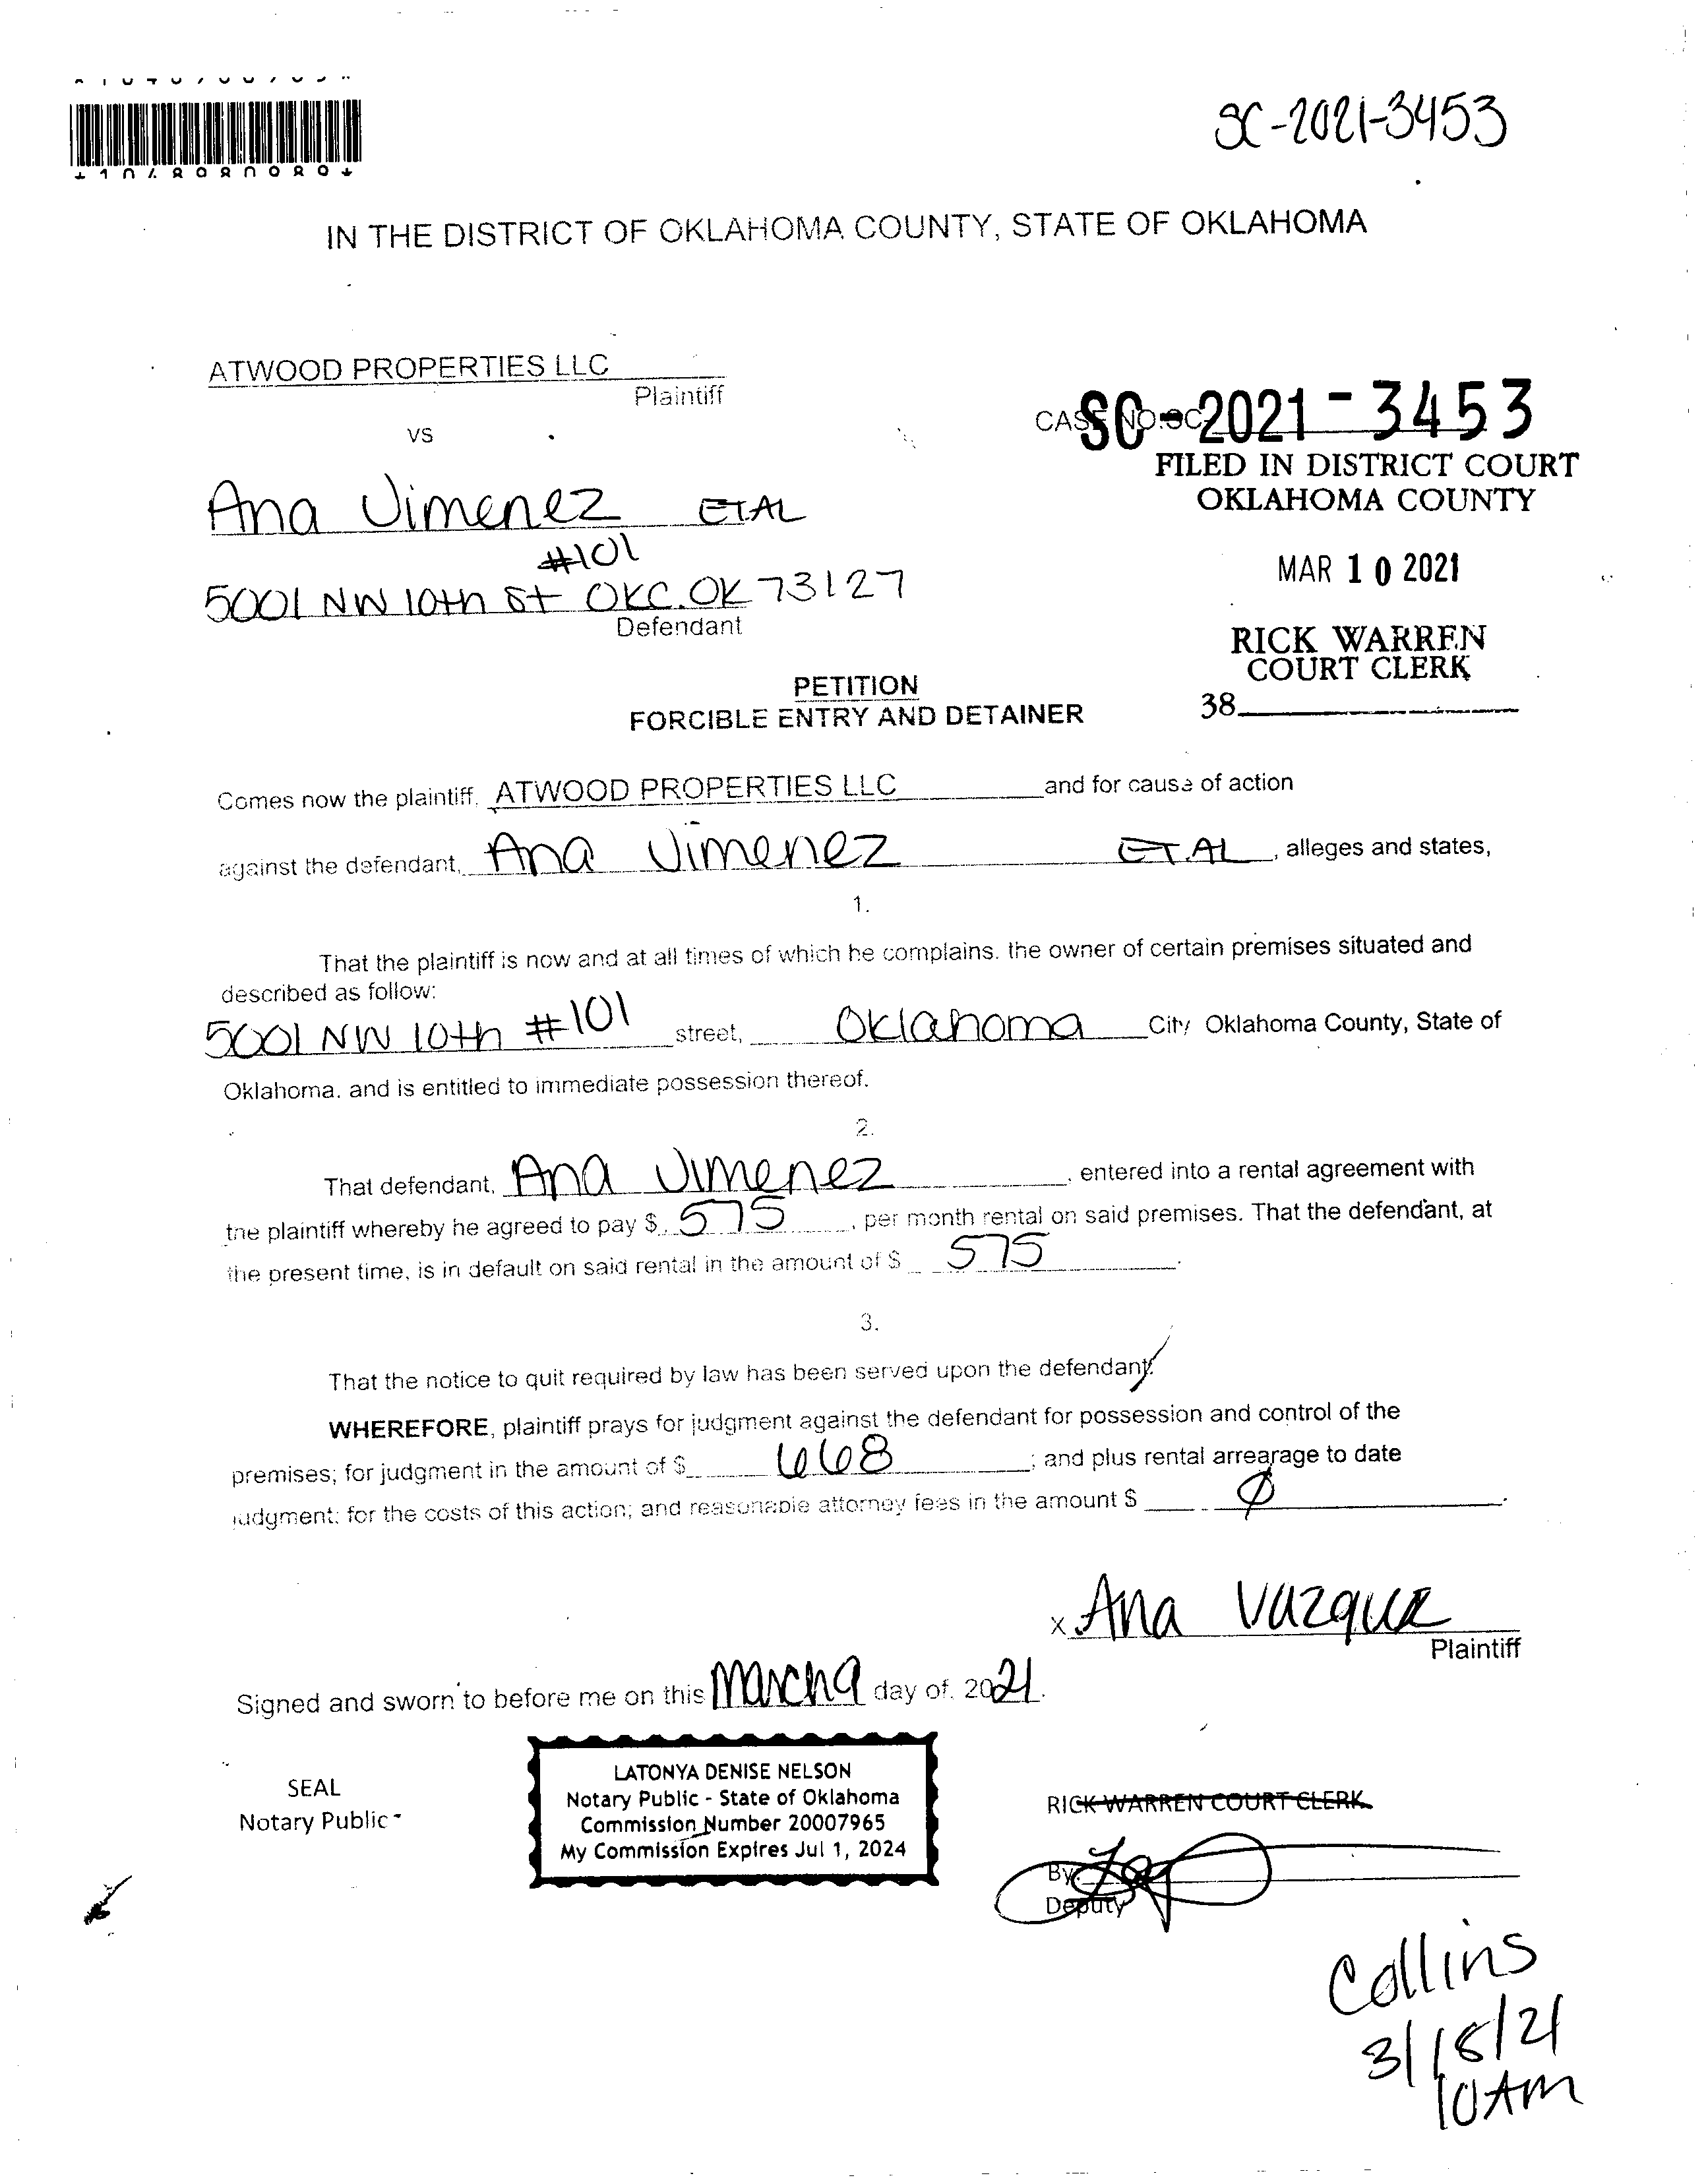 SC-2021-3453
IN THE DISTRICT OF OKLAHOMA COUNTY, STATE OF OKLAHOMA
ATWOOD PROPERTIES LLC
Plaintiff
VS
CASE NO. SC-2021-3453
FILED IN DISTRICT COURT
OKLAHOMA COUNTY
Ana Jimenez ETAL
#101
MAR 10 2021
5001 NW 10th St OKC. OK 73127
Defendant
RICK WARREN
COURT CLERK
38
PETITION
FORCIBLE ENTRY AND DETAINER
Comes now the plaintiff, ATWOOD PROPERTIES LLC and for cause of action
against the defendant, Ana Jimenez ET.AL, alleges and states,
1.
That the plaintiff is now and at all times of which he complains. the owner of certain premises situated and
described as follow:
5001 NW 10th #101 street, Oklahoma City Oklahoma County, State of
Oklahoma. and is entitled to immediate possession thereof.
2.
That defendant, Ana Jimenez, entered into a rental agreement with
the plaintiff whereby he agreed to pay $ 575, per month rental on said premises. That the defendant, at
the present time, is in default on said rental in the amount of $ 575.
3.
That the notice to quit required by law has been served upon the defendant.
WHEREFORE, plaintiff prays for judgment against the defendant for possession and control of the
premises; for judgment in the amount of $ 668; and plus rental arrearage to date
judgment; for the costs of this action; and reasonable attorney fees in the amount $ Ø.
x Ana Vazquez
Plaintiff
Signed and sworn to before me on this March 9 day of, 2021.
SEAL
Notary Public
LATONYA DENISE NELSON
Notary Public - State of Oklahoma
Commission Number 20007965
My Commission Expires Jul 1, 2024
RICK WARREN COURT CLERK
By:
Deputy
Collins
3/18/21
10AM